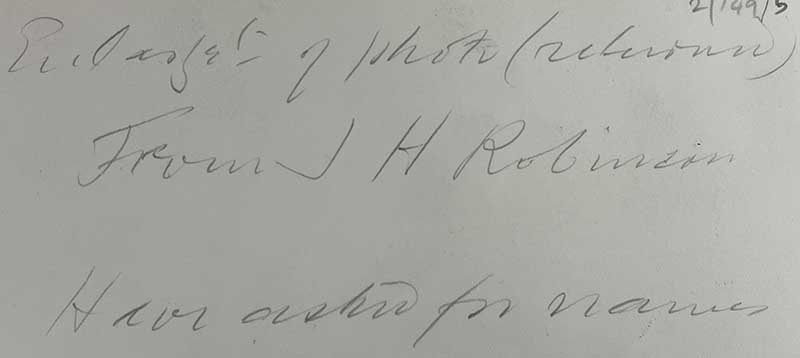 2/149/5
Enlarget of photo (returned)
From J H Robinson
Have asked for names